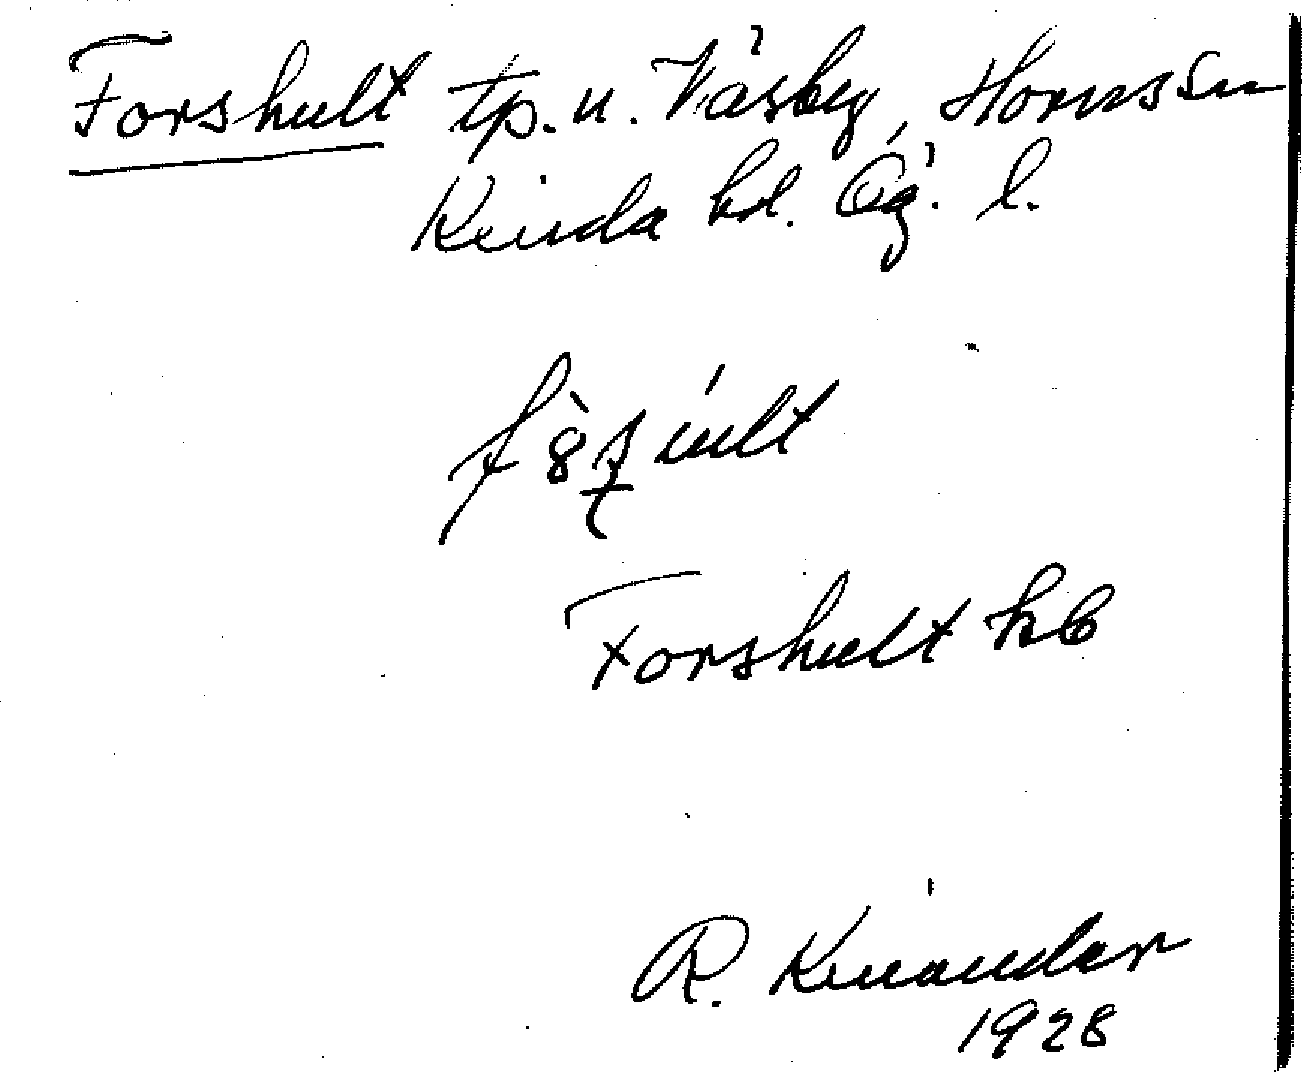 Forshult tp. u. Väsby, Horns Sn
Kinda hd. Ög. l.
Forshult kb
R. Kinander
1928